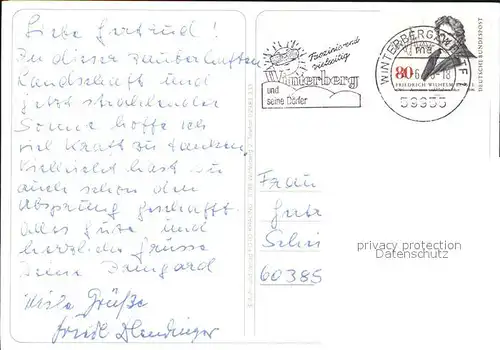 Liebe Gertrud!
In dieser zauberhaften
Landschaft und
jetzt strahlender
Sonne hoffe ich
viel Kraft zu tanken.
Vielleicht hast du
auch schon den
Absprung geschafft.
Alles Gute und
herzliche Grüsse
Deine Irmgard
Viele Grüße
Faszinierend
vielseitig
Winterberg
und
seine Dörfer
WINTERBERG, WESTF
59955
80
FRIEDRICH WILHELM
DEUTSCHE BUNDESPOST
Frau
60385
privacy protection
Datenschutz